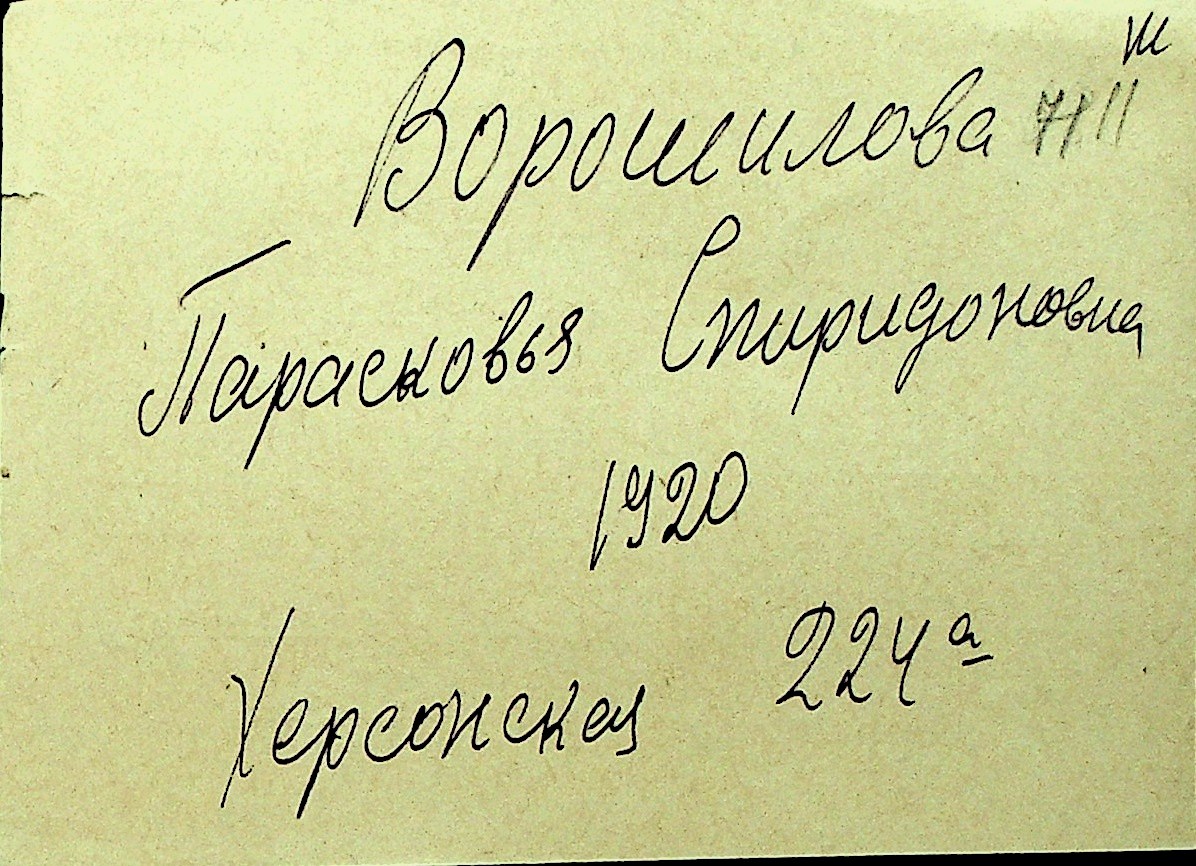 Ворошилова
Парасковья Спиридоновна
1920
Херсонская 224а